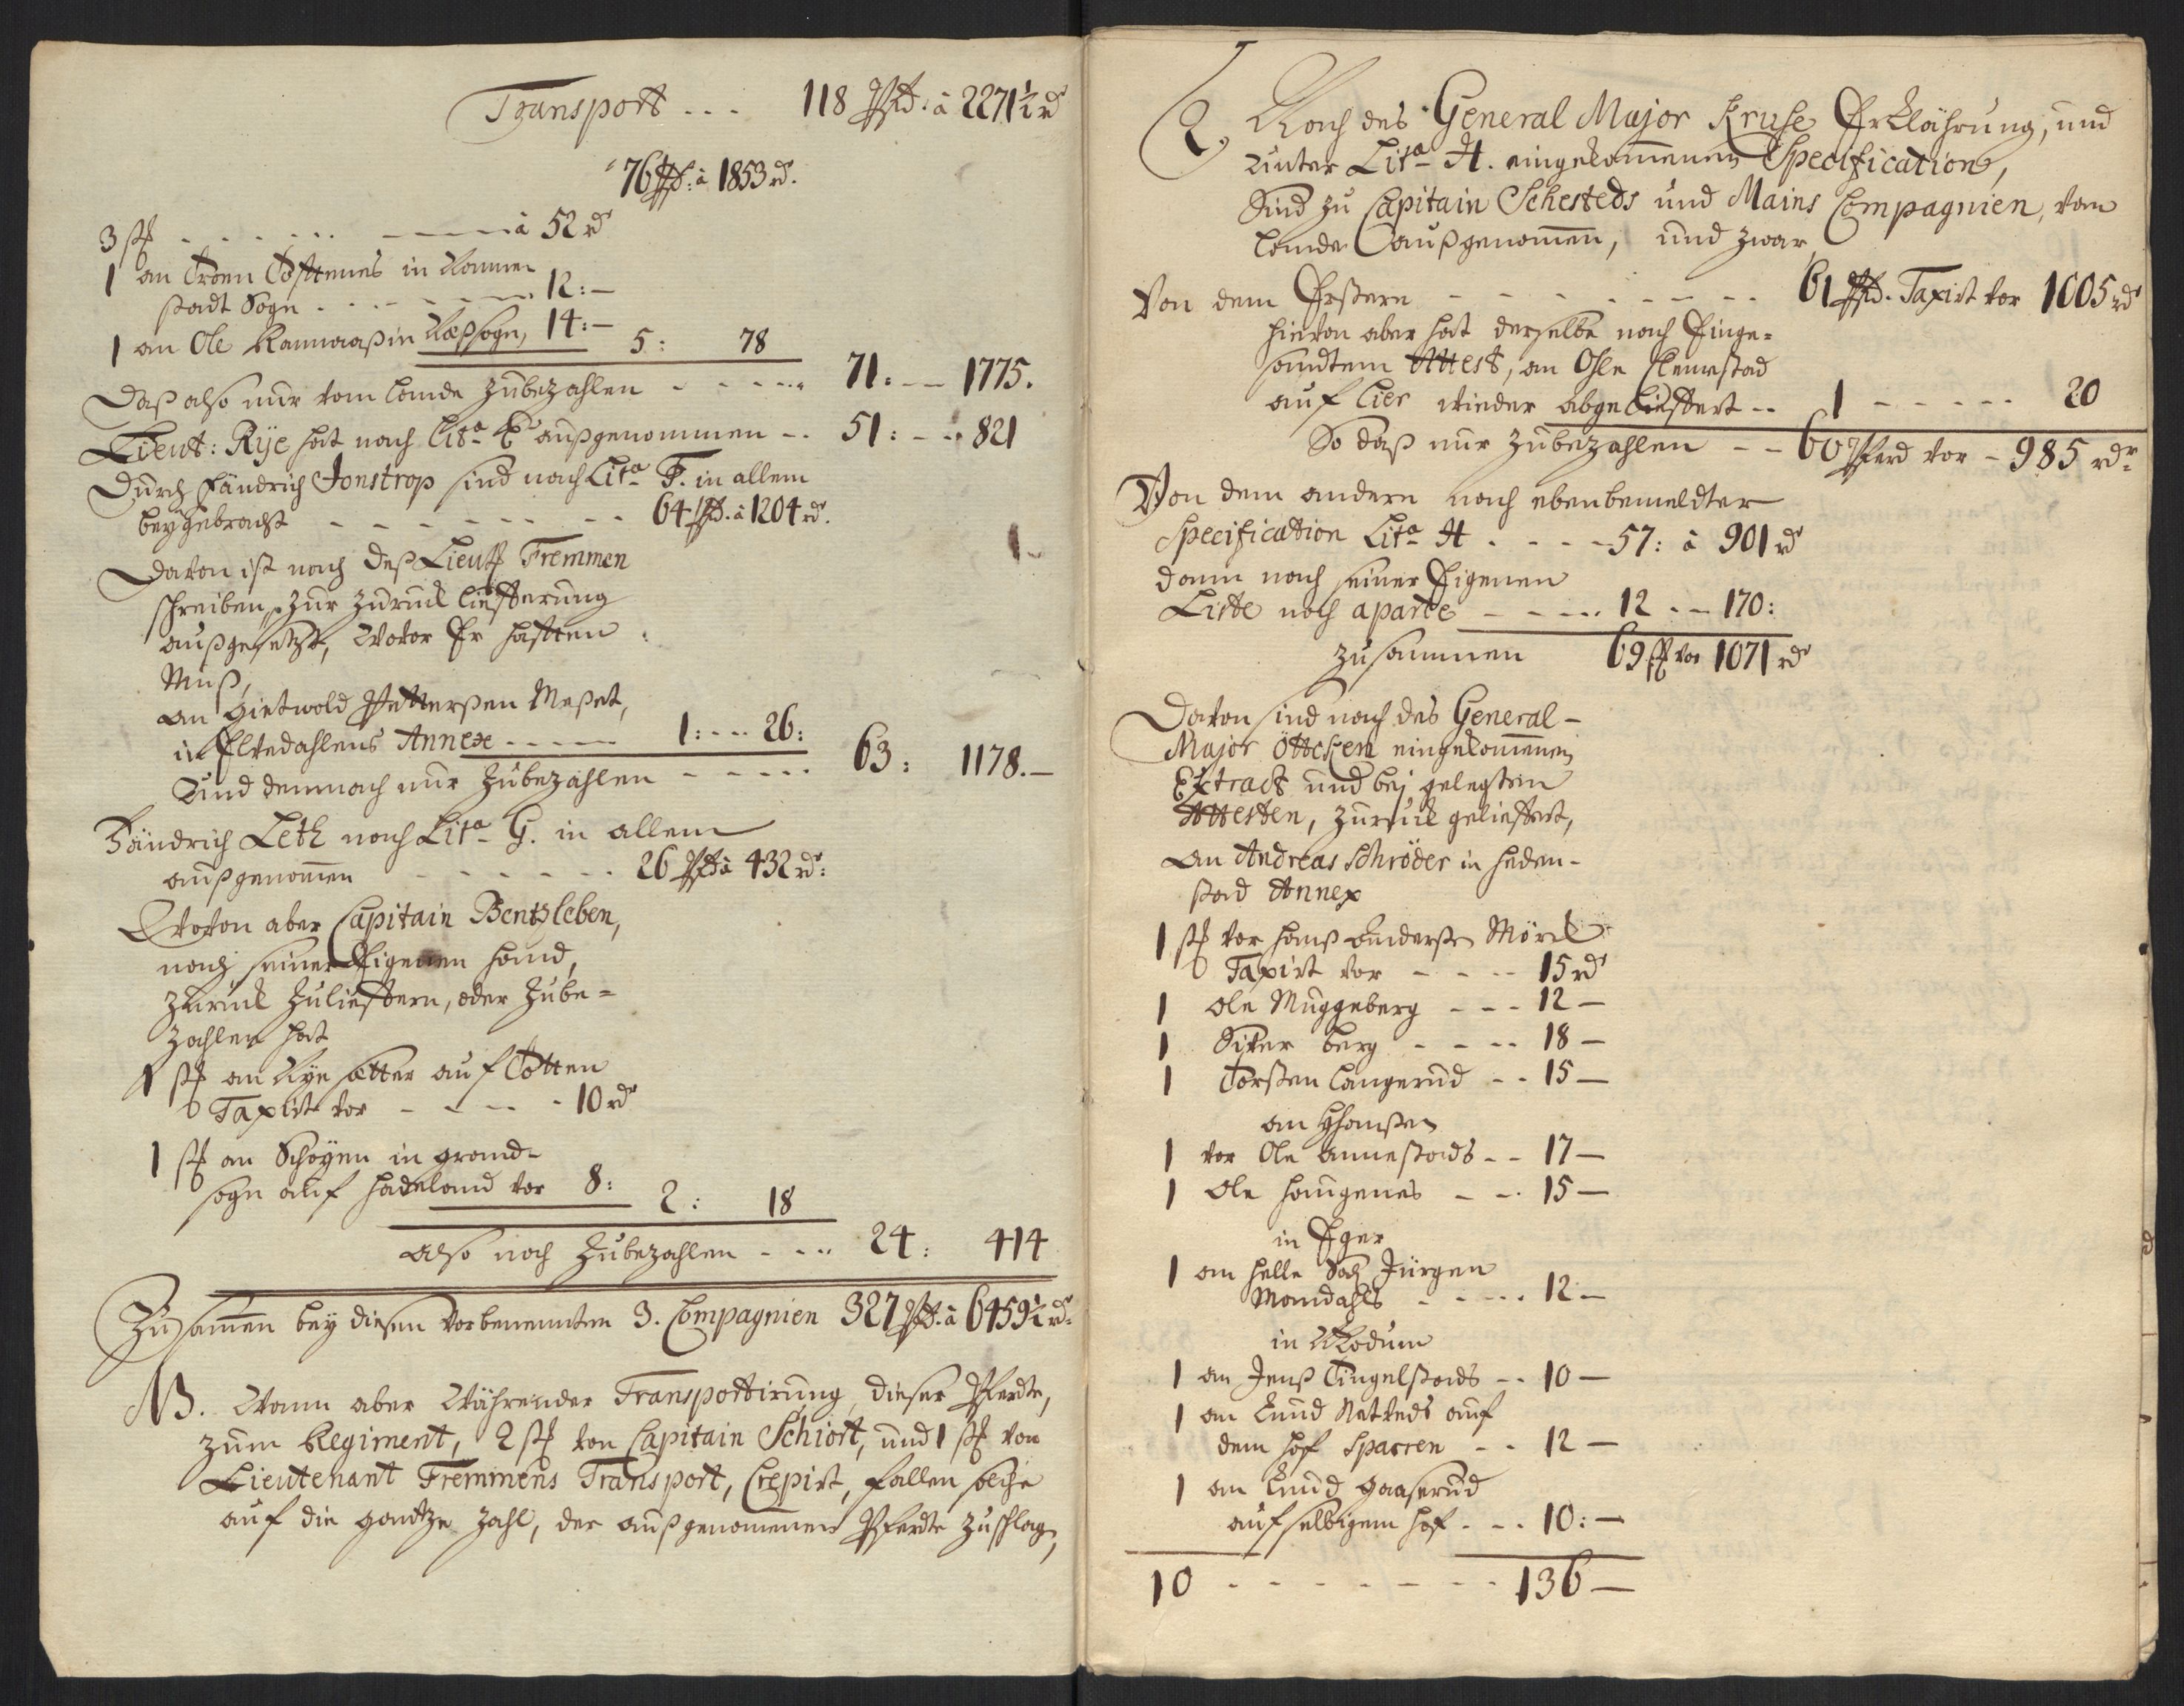 Transport . . . 118 Pfd: à 2271½ rd
76 Pfd: à 1853 rd.
3 st . . . . . . . . à 52 rd
1 an Troen Tosttenes in Rommen
stadt Sogn . . . . . . 12:—
1 an Ole Rannaas in Næssogn, 14:— 5: 78
Daß also nur vom Lande zubezahlen - - - - 71: — 1775.
Lieut: Rije hat nach Lita E außgenommen - . 51: - . 821
Durch Fändrich Jonstrop sind nach Lita F. in allem
beygebracht - - - - - - - 64 Pfd. à 1204 rd.
Davon ist nach deß Lieut Fremmen
schreiben, zur zuruck lieffterung
außgesetzt, Wovor Er hafften
Muß,
an Gietwold Pettersen Meset,
in Elvedahlens Annex - - - - - 1: - - - 26:
Und demnach nur zubezahlen - - - - - 63: 1178.—
Fändrich Leth nach Lita G. in allem
außgenomen - - - - - - 26 Pfd à 432 rd:
Wovon aber Capitain Bentzleben,
nach seiner Eigenen hand,
zuruck zulieffern, oder zube=
zahlen hat
1 st an Rye sætter auf Totten
Taxirt vor - - - - - 10 rd
1 st an Schøyen in grand-
sogn auf Hadeland vor 8: 2: 18
Also noch zubezahlen - - - 24: 414
Zusamen bey diesen vorbenennten 3. Compagnien 327 Pfd. à 6459½ rd:
NB. Wann aber Währender Transportirung, dieser Pferdte,
zum Regiment, 2 st von Capitain Schiort, und 1 st von
Lieutenant Fremmens Transport, Crepirt, fallen solche
auf die gantze Zahl, der außgenomenen Pferdte zuschlag,
2. Nach des General Major Kruse Erklährung, und
unter Lita H. eingekommenen Specification,
Sind zu Capitain Schesteds und Mains Compagnien, vom
Lande außgenomen, und zwar
Von dem Erstern - - - - - - - - 61 Pfd. Taxirt vor 1005 rd
hievon aber hat derselbe nach Einge=
sandtem Attest, an Ohle Clemestad
auf Lier wieder abgelieffert - - 1 - - - - - 20
So daß nur zubezahlen - - 60 Pferd vor - 985 rdr
Von dem andern nach ebenbemeldter
Specification Lita H . - - - 57: à 901 rd
dann nach seiner Eigenen
Liste noch aparte - - - - . 12 . - - 170:
zusammen 69 st vor 1071 rd
Davon sind nach des General-
Major Öttcken eingekommenen
Extract und bei gelegsten
Attesten, zuruck geliefert,
An Andreas Schrøder in Heden-
stad Annex
1 st vor Hanß Anderßen Mörck
Taxirt vor - - - - 15 rd
1 Ole Muggeberg - - - 12 —
1 Siver Berg - - - - 18 —
1 Torsten Langerud - - 15 —
an Hhansen
1 vor Ole Annestads - - 17 —
1 Ole Haugenes - - . 15 —
in Eger
1 an Helle Bach Jürgen
Mondahls - - - - . 12 —
in Modum
1 an Jenß Tingelstads - . 10 —
1 an Knud Natveds auf
dem hof Sparren - - 12 —
1 an Knud Gaaserud
auf selbigem hof . - . 10:—
10 - - - - - - - 136 —